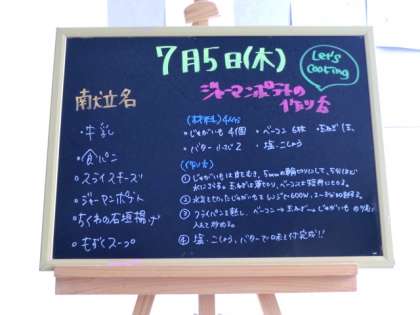 7月5日(木)
Let's
cooking
献立名
・牛乳
・食パン
・スライスチーズ
・ジャーマンポテト
・ちくわの石垣揚げ
・もずくスープ
ジャーマンポテトの
作り方
(材料) 4人分
・じゃがいも 4個 ・ベーコン 6枚 ・玉ねぎ
・バター 小さじ2 ・塩・こしょう
(作り方)
① じゃがいもは皮をむき、5mmの輪切りにして、5分ほど
水にさらす。玉ねぎは薄切り、ベーコンは短冊に切る。
② 水気を切ったじゃがいもをレンジで600W、2〜3分加熱する。
③ フライパンを熱し、ベーコン→玉ねぎ→じゃがいも の順に
入れて炒める。
④ 塩・こしょう、バターで味を付け完成!!